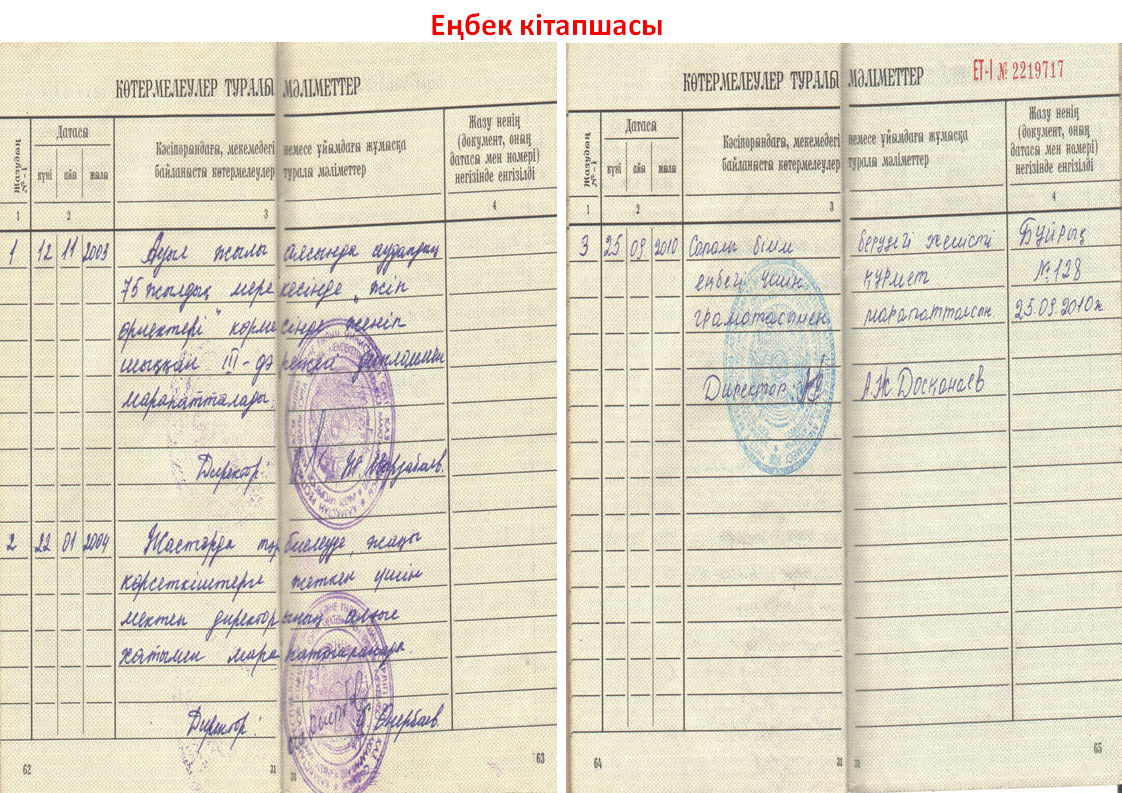 Еңбек кітапшасы
КӨТЕРМЕЛЕУЛЕР ТУРАЛЫ МӘЛІМЕТТЕР
Жазудың №-і
Датасы
күні айы жылы
Кәсіпорындағы, мекемедегі немесе ұйымдағы жұмысқа
байланысты көтермелеулер туралы мәліметтер
Жазу ненің
(документ, оның
датасы мен номері)
негізінде енгізілді
1 2 3 4
1 12 11 2003 Ауыл жылы аясында ауданның
75 жылдық мерекесінде "жіп
өрмектері" көрмесінде жеңіп
шыққан III-дәрежелі дипломмен
марапатталады.
Директор:
2 22 01 2004 Жастарды тәрбиелеуде, жақсы
көрсеткіштерге жеткен үшін
мектеп директорының алғыс
хатымен марапатталады.
Директор:
62 31 31 63
КӨТЕРМЕЛЕУЛЕР ТУРАЛЫ МӘЛІМЕТТЕР
ЕТ-I № 2219717
Жазудың №-і
Датасы
күні айы жылы
Кәсіпорындағы, мекемедегі немесе ұйымдағы жұмысқа
байланысты көтермелеулер туралы мәліметтер
Жазу ненің
(документ, оның
датасы мен номері)
негізінде енгізілді
1 2 3 4
3 25 09 2010 Сапалы білім берудегі жемісті Бұйрық
еңбегі үшін құрмет №128
грамотасымен марапатталсын. 25.09.2010ж
Директор А.Ж.Досқанаев
64 31 31 65